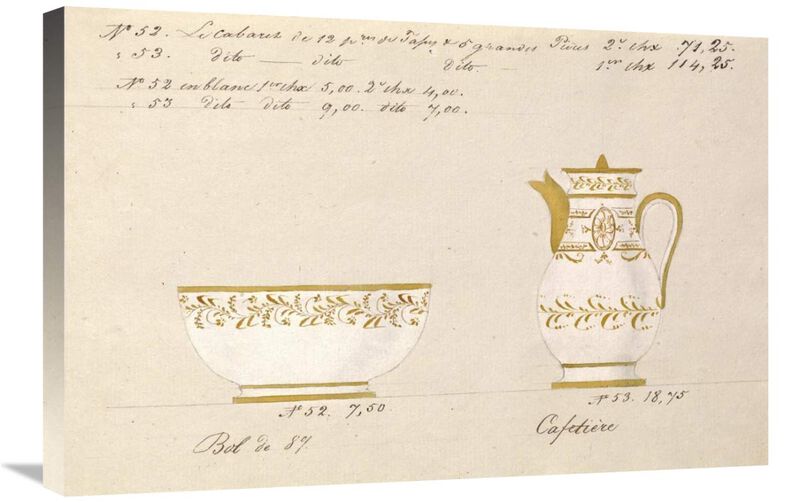 Nº 52. Le Cabaret de 12 p.res de Tasses & 5 grandes Pièces 2.e chx 71,25.
" 53. dito — dito dito. — 1.er chx 114,25.
Nº 52 en blanc 1.er chx 5,00. 2.e chx 4,00.
" 53 dito dito 9,00. dito 7,00.
Nº 52. 7,50
Nº 53. 18,75
Bol de 8 p.
Cafetière